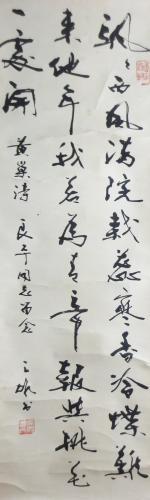 飒〻西风满院栽蕊寒香冷蝶难
来他年我若为青帝报与桃花
一处开
黄巢诗 良平同志留念